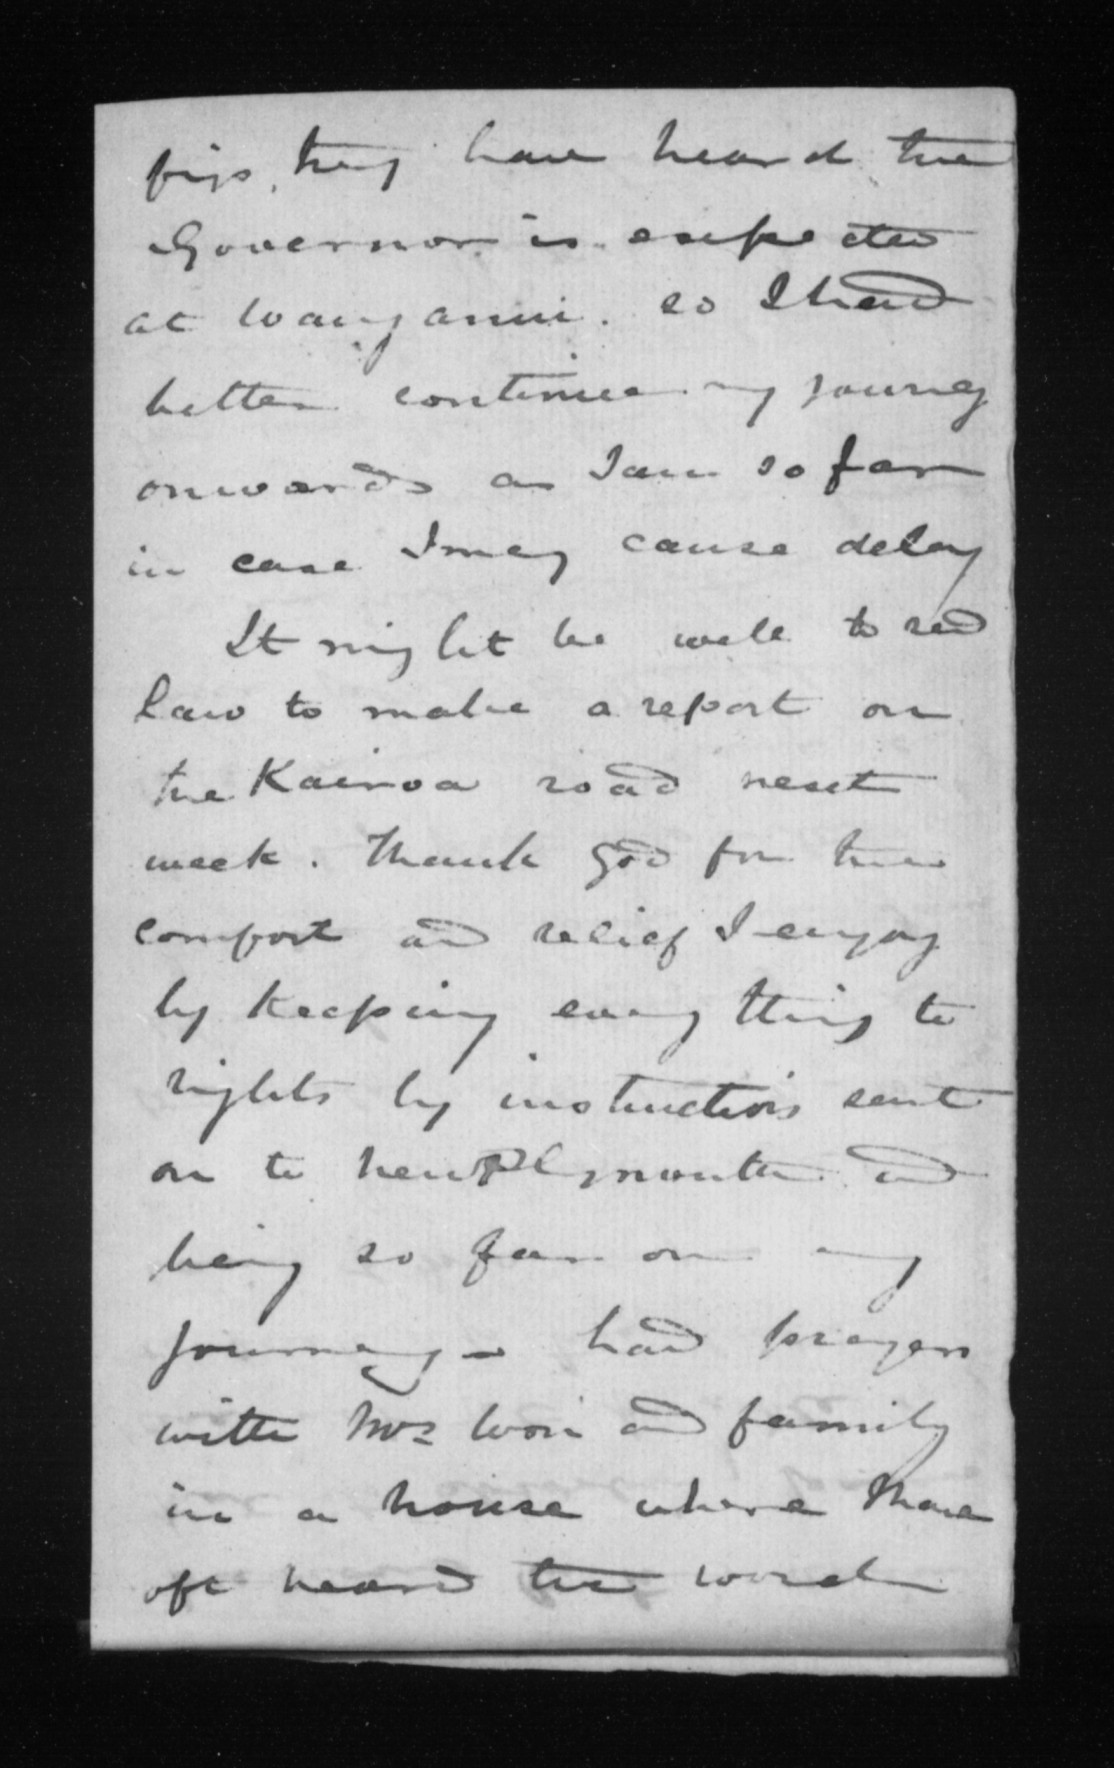 pigs, they have heard the
Governor is expected
at Wanganui. so I had
better continue my journey
onwards as I am so far
in case I may cause delay
It might be well to send
Law to make a report on
the Kairoa road next
week. Thank God for the
comfort and relief I enjoy
by keeping every thing to
rights by instructions sent
on to New Plymouth and
being so far on my
journey - had prayers
with Mrs and family
in a house where I have
oft heard the word